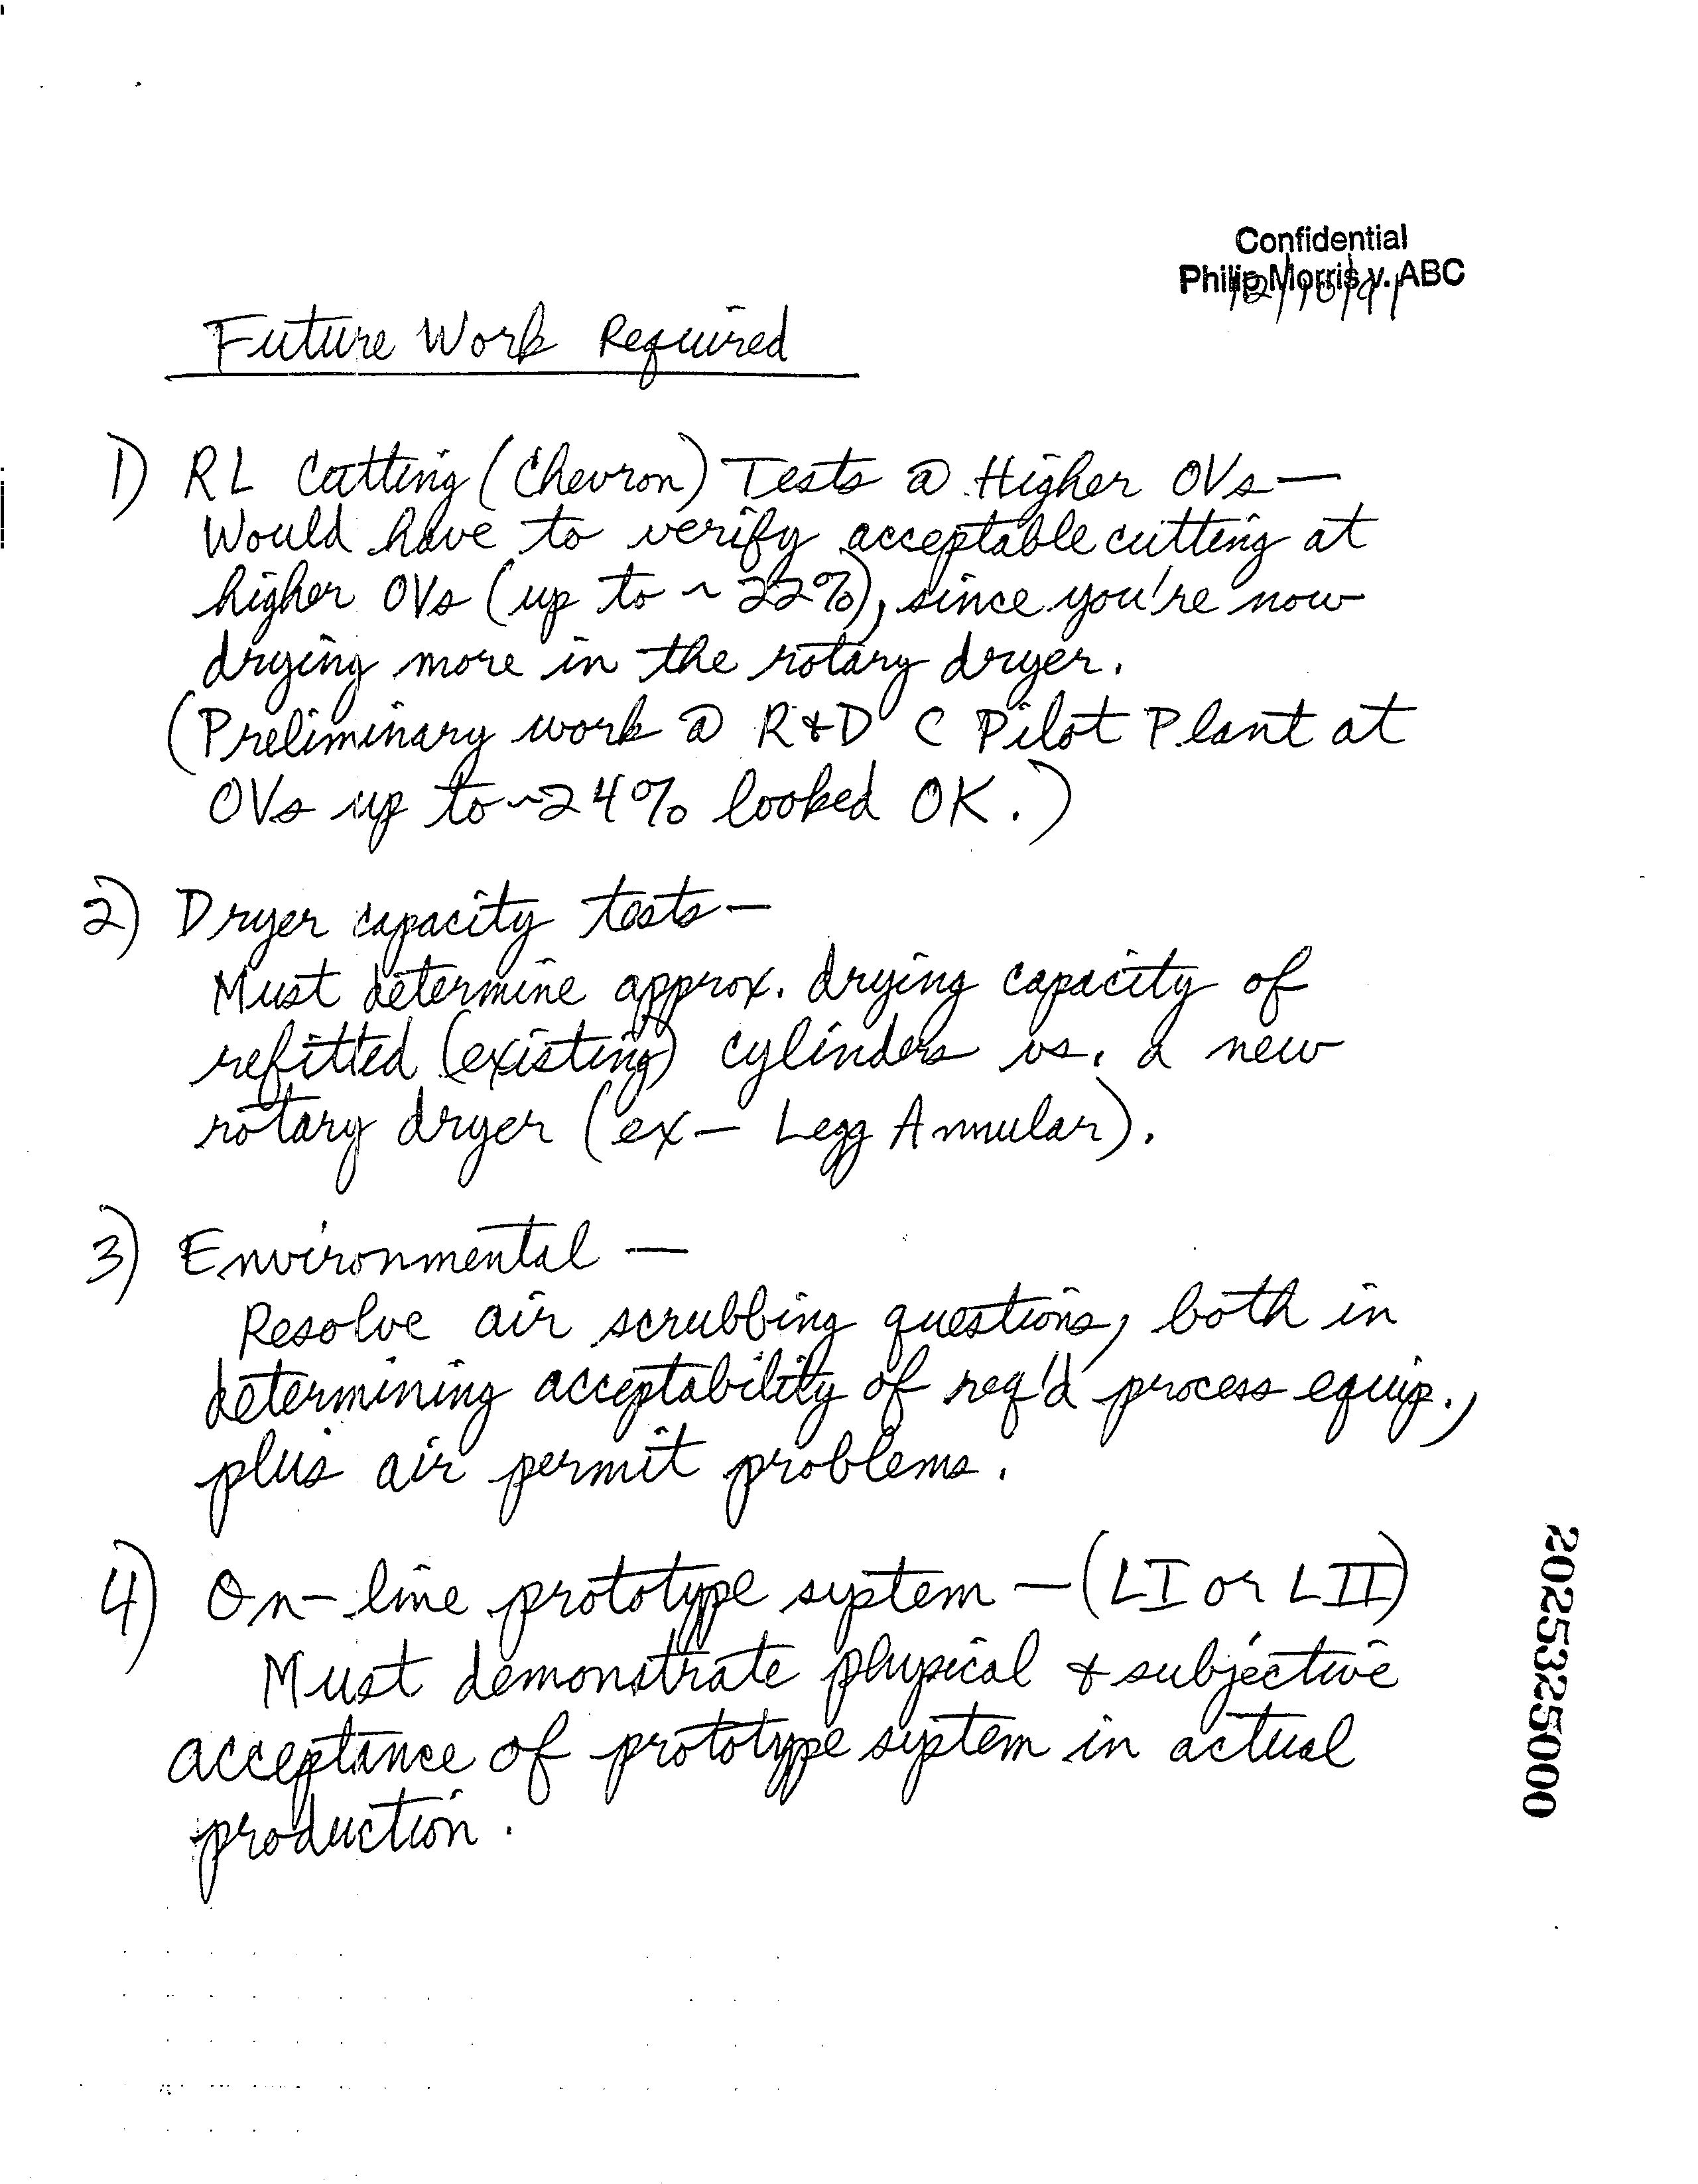 Confidential
Philip Morris v. ABC
12/10/91
Future Work Required
1) RL Cutting (Chevron) Tests @ Higher OVs —
Would have to verify acceptable cutting at
higher OVs (up to ~ 22%), since you're now
drying more in the rotary dryer.
(Preliminary work @ R+D C Pilot Plant at
OVs up to ~24% looked OK.)
2) Dryer capacity tests —
Must determine approx. drying capacity of
refitted (existing) cylinders vs. a new
rotary dryer (ex — Legg Annular).
3) Environmental —
Resolve air scrubbing questions, both in
determining acceptability of req'd process equip.,
plus air permit problems.
4) On-line prototype system — (LI or LII)
Must demonstrate physical + subjective
acceptance of prototype system in actual
production.
2025325000